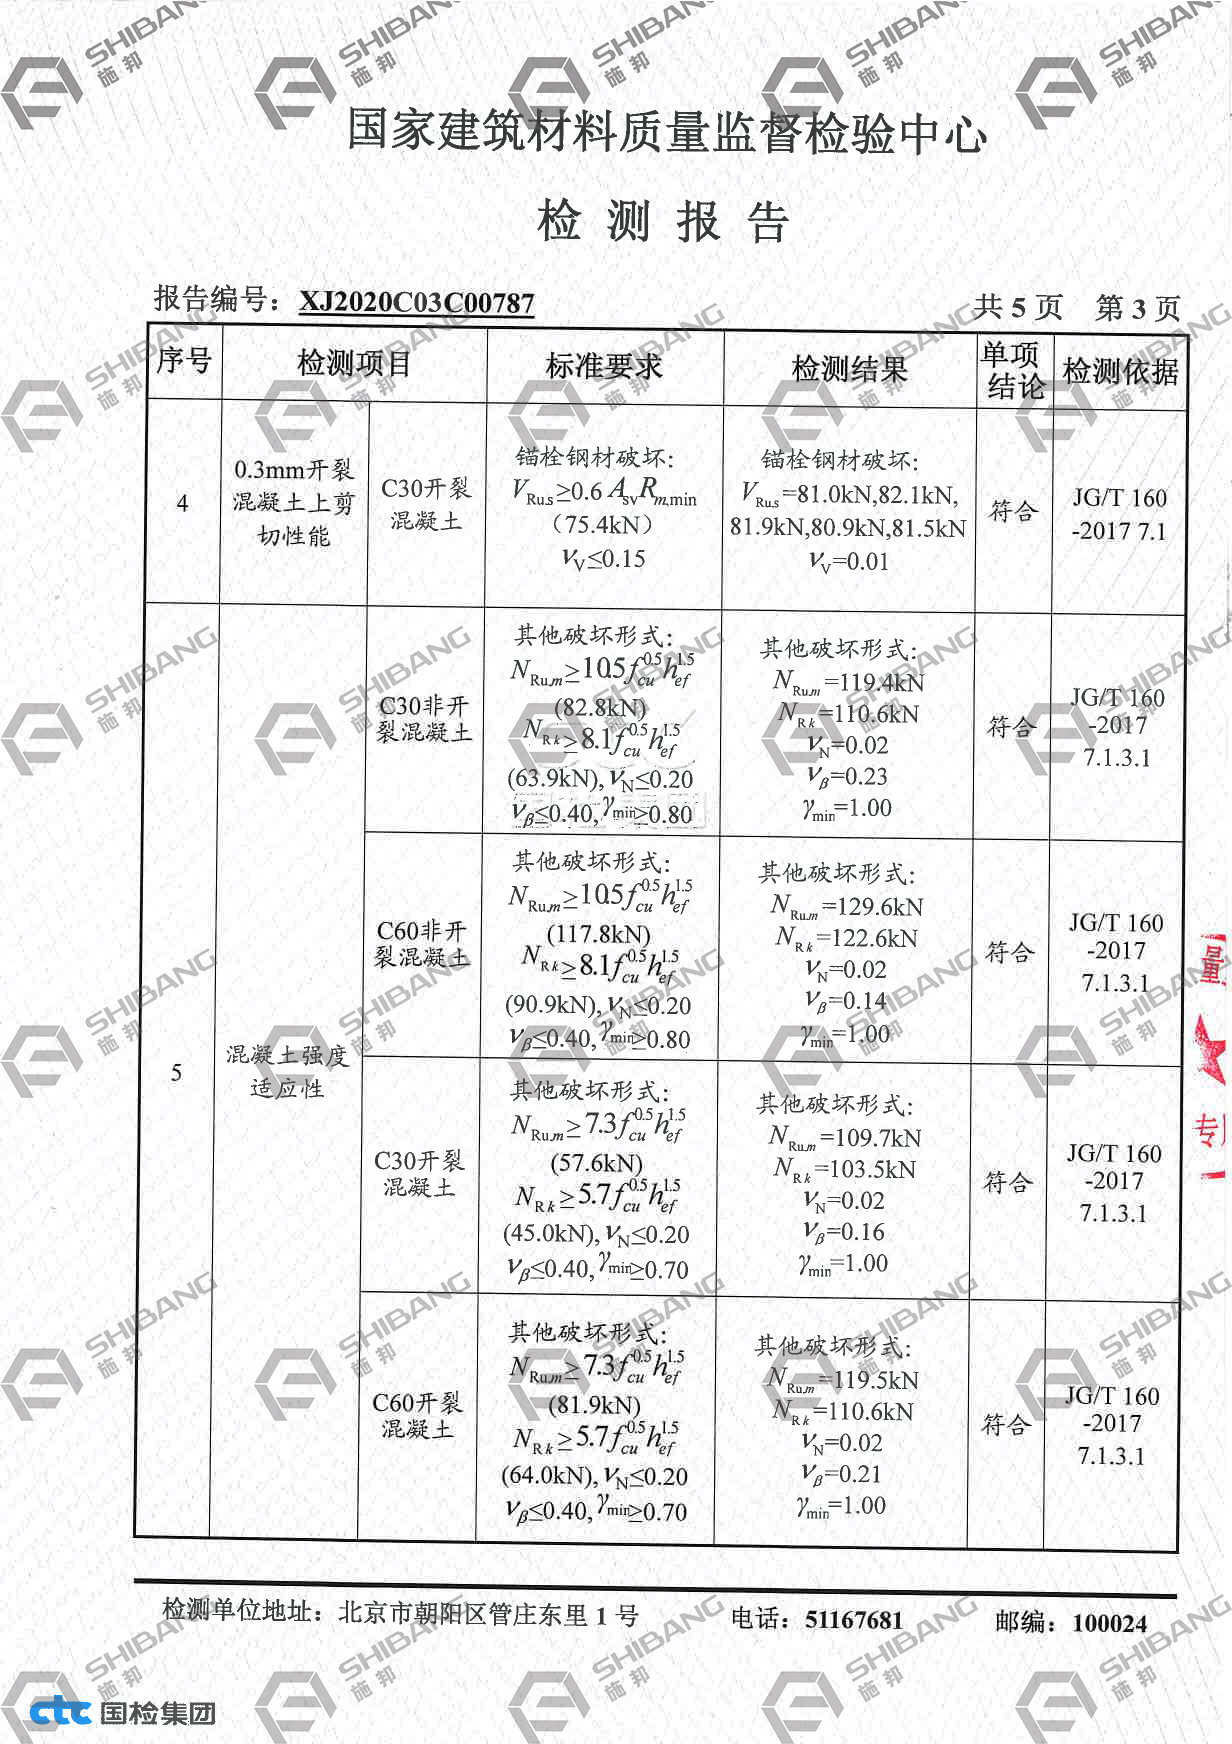 国家建筑材料质量监督检验中心
检 测 报 告
报告编号：XJ2020C03C00787
共 5 页 第 3 页
序号 检测项目 标准要求 检测结果 单项结论 检测依据
4
0.3mm开裂
混凝土上剪
切性能
C30开裂
混凝土
锚栓钢材破坏：
V_Ru,s≥0.6 A_sv R_m,min
（75.4kN）
ν_V≤0.15
锚栓钢材破坏：
V_Ru,s=81.0kN,82.1kN,
81.9kN,80.9kN,81.5kN
ν_V=0.01
符合
JG/T 160
-2017 7.1
5
混凝土强度
适应性
C30非开
裂混凝土
其他破坏形式：
N_Ru,m≥10.5f_cu^0.5 h_ef^1.5
(82.8kN)
N_Rk≥8.1f_cu^0.5 h_ef^1.5
(63.9kN), ν_N≤0.20
ν_β≤0.40, γ_min≥0.80
其他破坏形式：
N_Ru,m=119.4kN
N_Rk=110.6kN
ν_N=0.02
ν_β=0.23
γ_min=1.00
符合
JG/T 160
-2017
7.1.3.1
C60非开
裂混凝土
其他破坏形式：
N_Ru,m≥10.5f_cu^0.5 h_ef^1.5
(117.8kN)
N_Rk≥8.1f_cu^0.5 h_ef^1.5
(90.9kN), ν_N≤0.20
ν_β≤0.40, γ_min≥0.80
其他破坏形式：
N_Ru,m=129.6kN
N_Rk=122.6kN
ν_N=0.02
ν_β=0.14
γ_min=1.00
符合
JG/T 160
-2017
7.1.3.1
C30开裂
混凝土
其他破坏形式：
N_Ru,m≥7.3f_cu^0.5 h_ef^1.5
(57.6kN)
N_Rk≥5.7f_cu^0.5 h_ef^1.5
(45.0kN), ν_N≤0.20
ν_β≤0.40, γ_min≥0.70
其他破坏形式：
N_Ru,m=109.7kN
N_Rk=103.5kN
ν_N=0.02
ν_β=0.16
γ_min=1.00
符合
JG/T 160
-2017
7.1.3.1
C60开裂
混凝土
其他破坏形式：
N_Ru,m≥7.3f_cu^0.5 h_ef^1.5
(81.9kN)
N_Rk≥5.7f_cu^0.5 h_ef^1.5
(64.0kN), ν_N≤0.20
ν_β≤0.40, γ_min≥0.70
其他破坏形式：
N_Ru,m=119.5kN
N_Rk=110.6kN
ν_N=0.02
ν_β=0.21
γ_min=1.00
符合
JG/T 160
-2017
7.1.3.1
量
专
检测单位地址：北京市朝阳区管庄东里 1 号
电话：51167681
邮编：100024
ctc 国检集团
SHIBANG
施邦